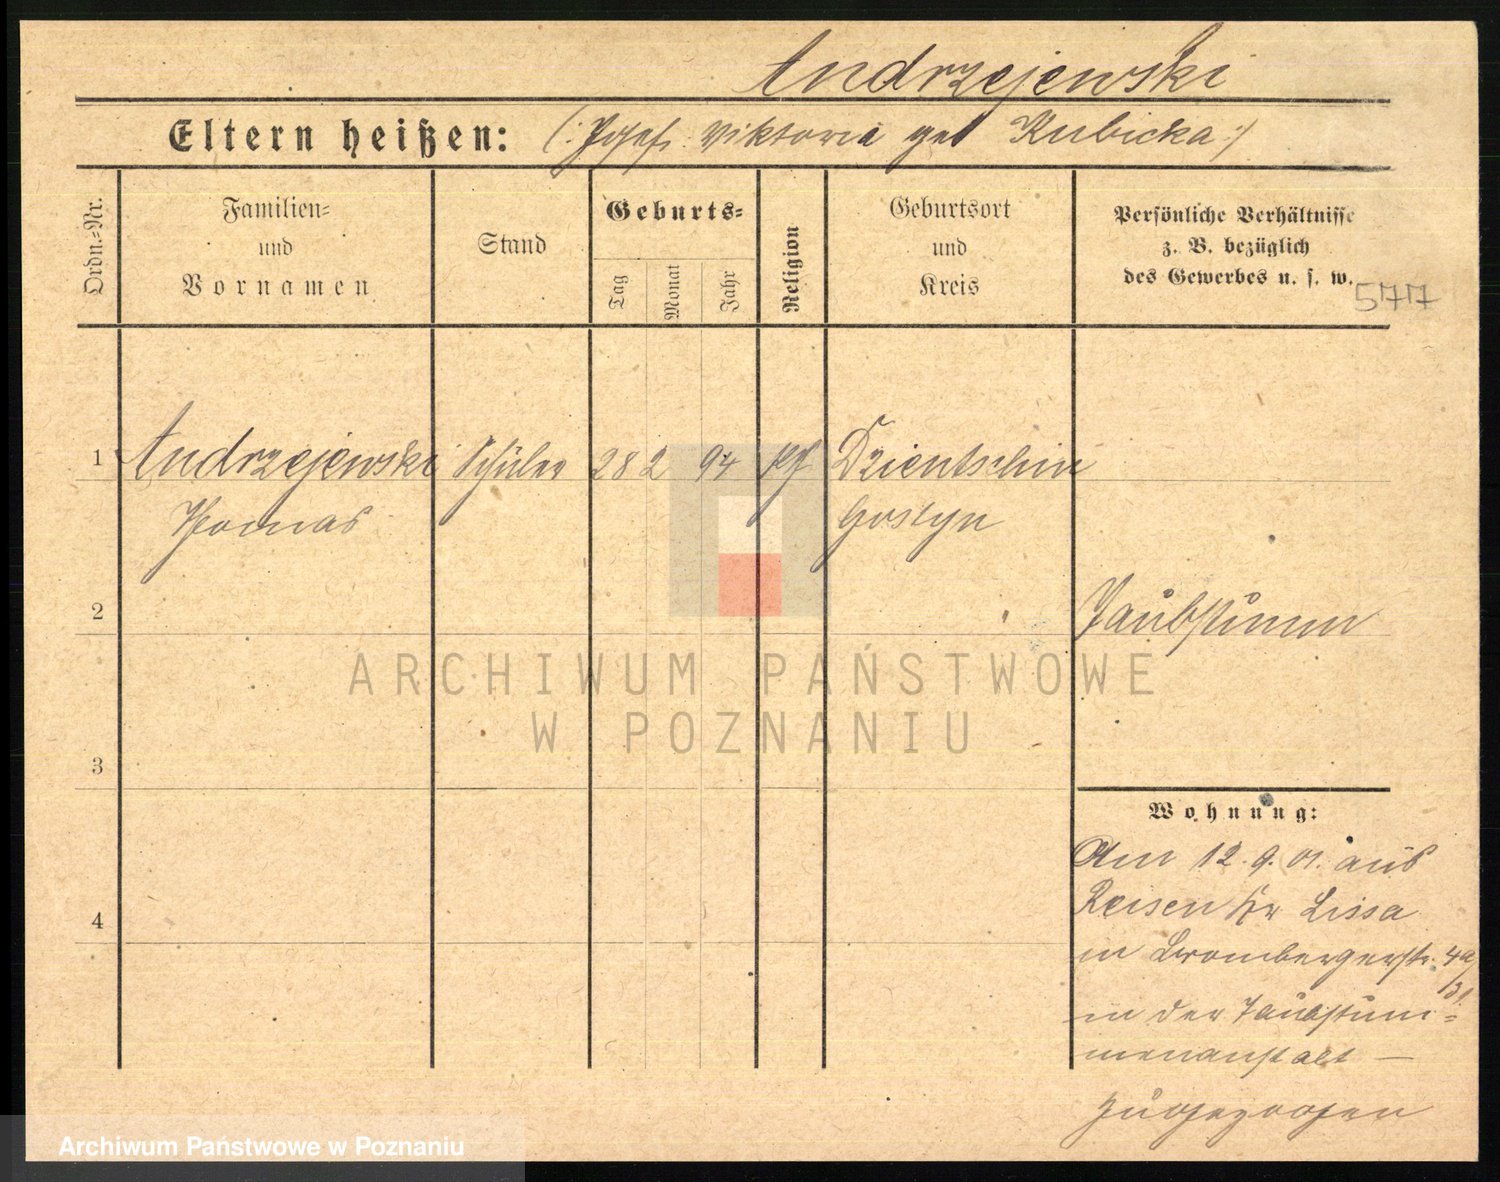 Andrzejewski
Eltern heißen: (: Josef, Viktoria geb Kubicka :)
Ordn.-Nr.
Familien-
und
Vornamen
Stand
Geburts-
Tag
Monat
Jahr
Religion
Geburtsort
und
Kreis
Persönliche Verhältnisse
z. B. bezüglich
des Gewerbes u. s. w.
577
1 Andrzejewski Schüler 28 2 94 kth Dzientschin
Thomas Gostyn
2 Taubstumm
ARCHIWUM PAŃSTWOWE
W POZNANIU
3
Wohnung:
Am 12.9.01. aus
Reisen Kr Lissa
4
in Brombergerstr. 4a
in der Taubstum-
menanstalt —
zugezogen
Archiwum Państwowe w Poznaniu